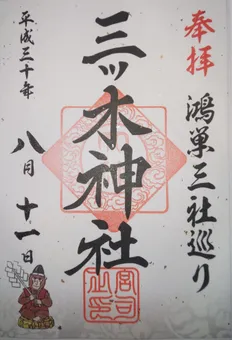 奉拝
鴻巣三社巡り
三ッ木神社
平成三十年
八月十一日